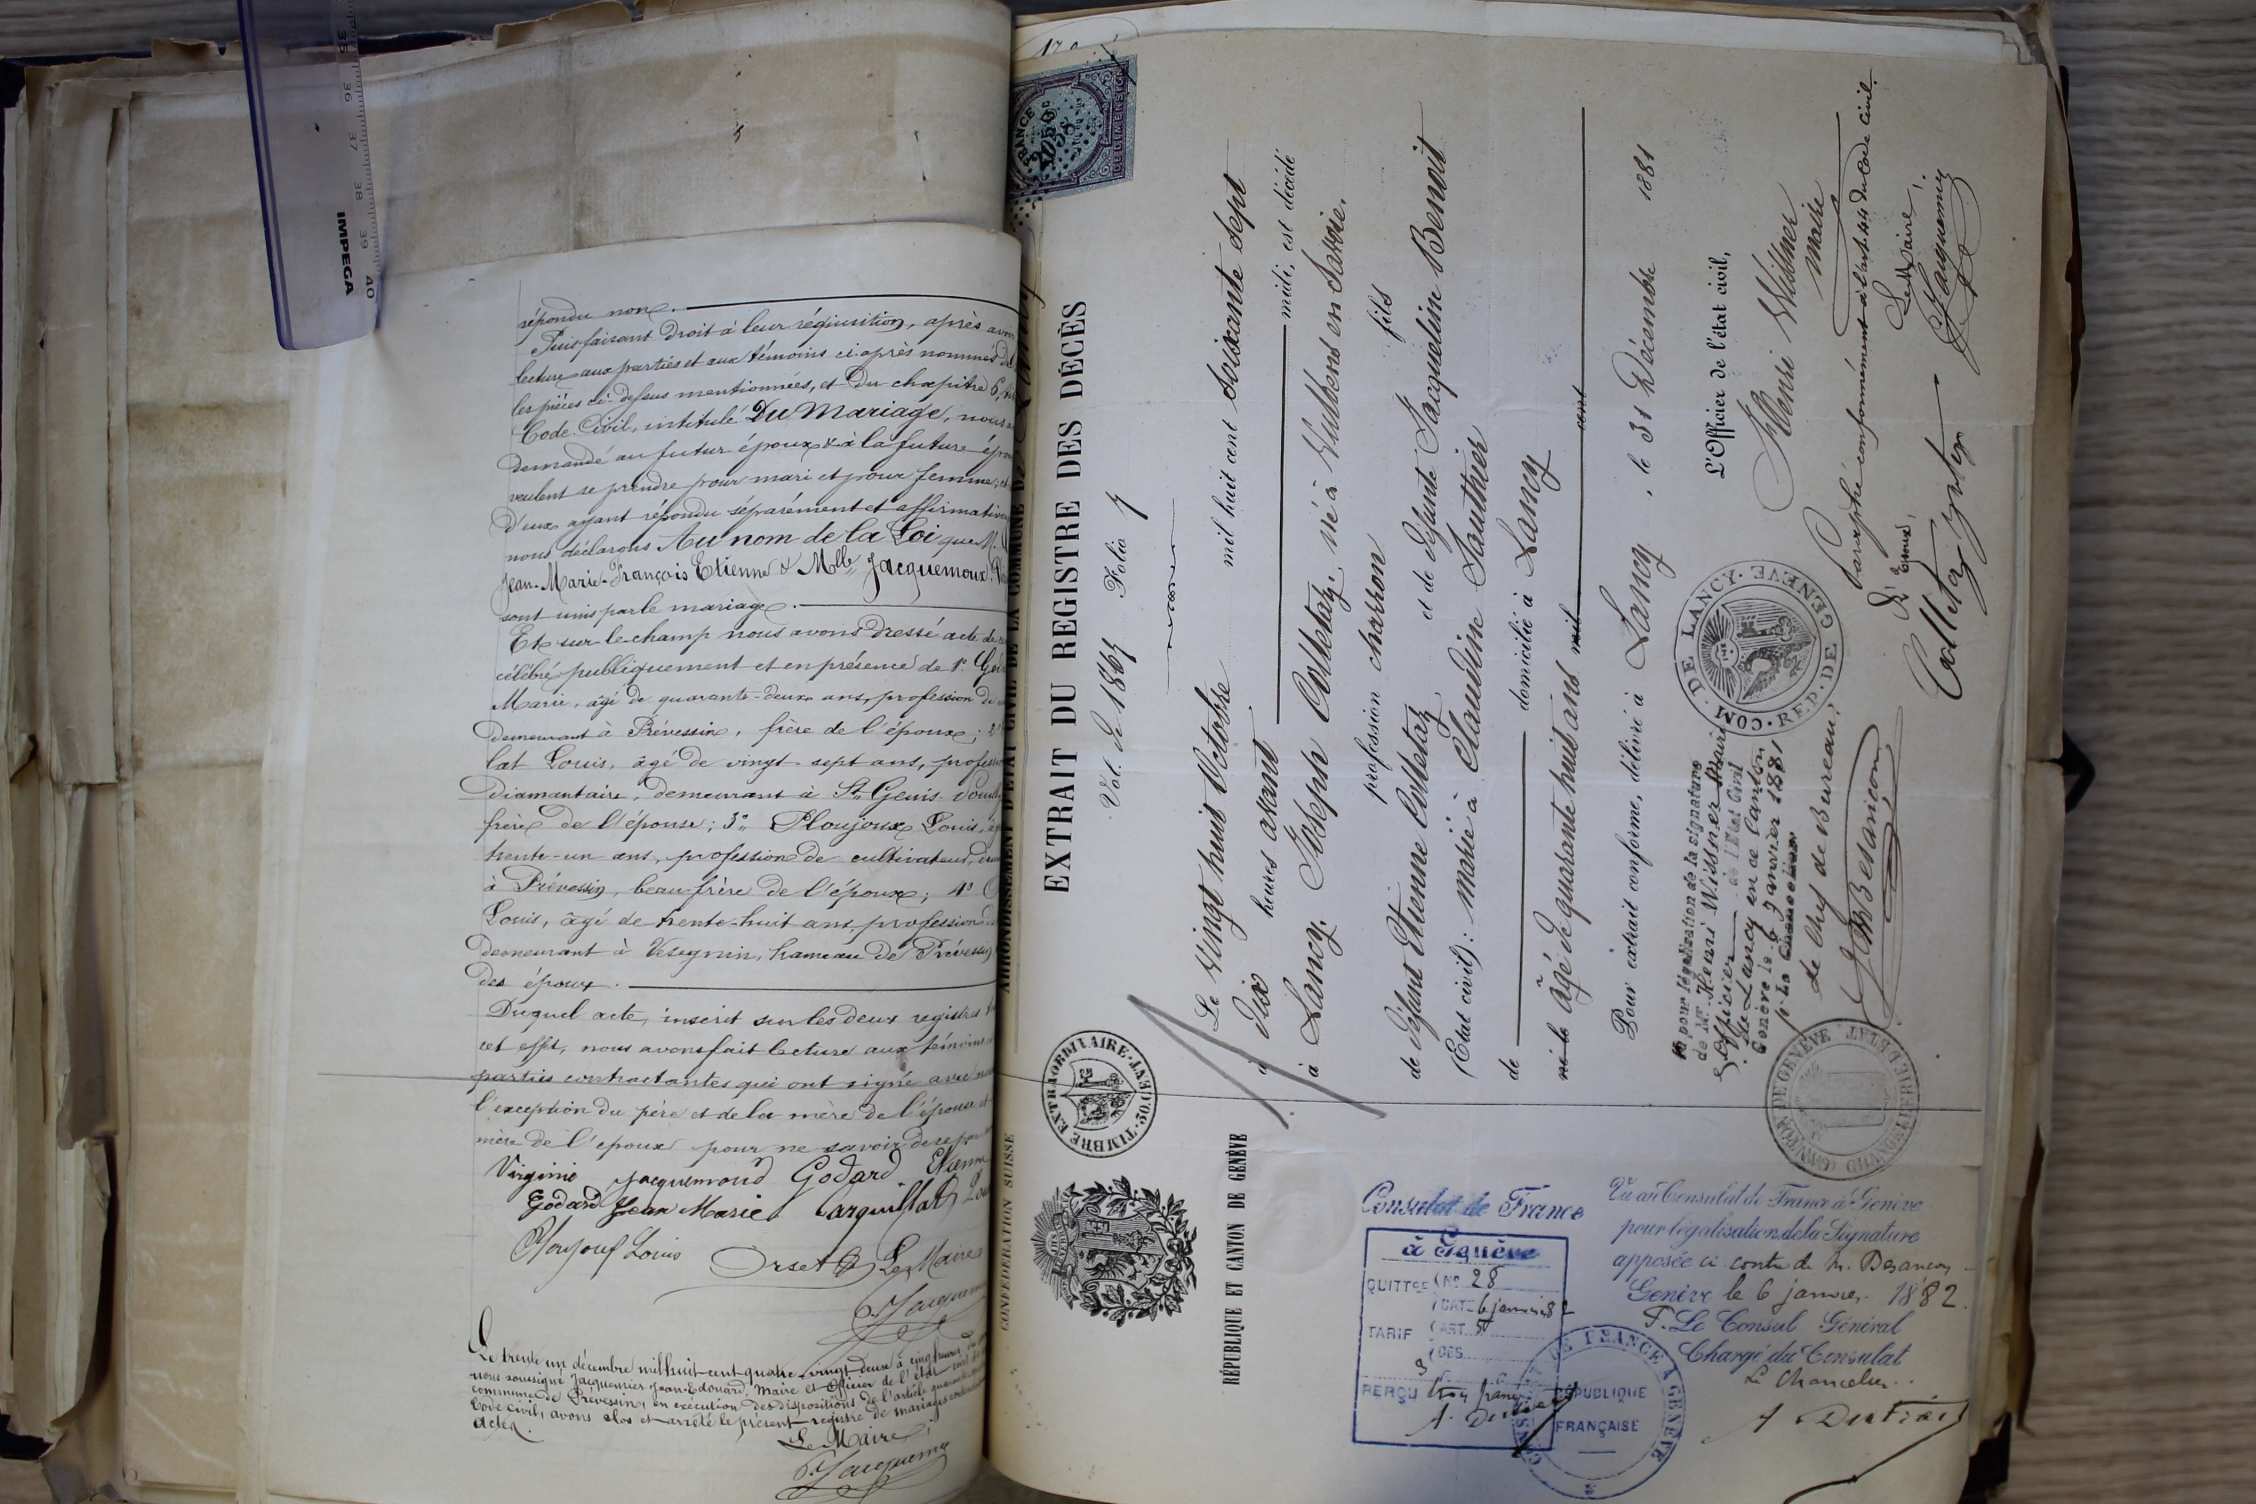 répondu non.
Puis faisant droit à leur réquisition, après avoir
lecture aux parties et aux témoins ci-après nommés de
les pièces ci-dessus mentionnées, et du chapitre 6,
Code Civil, intitulé Du Mariage, nous
demandé au futur époux & à la future
veulent se prendre pour mari et pour femme;
d'eux ayant répondu séparément et
nous déclarons Au nom de la Loi que M.
Jean-Marie-François Etienne & Mlle Jacquemoux
sont unis par le mariage.
Et sur le champ nous avons dressé acte de
célébré publiquement et en présence de 1°
Marie, âgé de quarante-deux ans, profession de
demeurant à Prévessin, frère de l'époux; 2°
lat Louis, âgé de vingt-sept ans,
diamantaire, demeurant à St Genis
frère de l'épouse; 3° Ploujoux Louis,
trente-un ans, profession de cultivateur,
à Prévessin, beau-frère de l'époux; 4°
Louis, âgé de trente-huit ans, profession
demeurant à Vésegnin, hameau de Prévessin
des époux.
Duquel acte, inscrit sur les deux registres
cet effet, nous avons fait lecture aux témoins
parties contractantes qui ont signé avec
l'exception du père et de la mère de l'épouse et
mère de l'époux pour ne savoir
Virginie Jacquemoud Godard Etienne
Godard Jean Marie Carquillat
Ploujouf Louis Orset Le Maire
Jacquemier
Le trente un décembre mil huit cent quatre-vingt deux à cinq heures du
nous soussigné Jacquemier Jean-Edouard, Maire et Officier de l'état civil
commune de Prévessin, en exécution des dispositions de l'article
Code civil, avons clos et arrêté le présent registre de mariages
actes.
Le Maire,
Jacquemier
IMPEGA
35 36 37 38 39 40
CONFÉDÉRATION SUISSE
ARRONDISSEMENT D'ÉTAT CIVIL DE LA COMMUNE DE
RÉPUBLIQUE ET CANTON DE GENÈVE
TIMBRE EXTRAORDINAIRE
EXTRAIT DU REGISTRE DES DÉCÈS
Vol. de 1867 Folio 7
Le vingt huit Octobre mil huit cent soixante sept
à dix heures avant midi, est décédé
à Lancy, Joseph Colletaz, né à Vulbens en Savoie.
profession charron fils
de défunt Etienne Colletaz et de défunte Jacqueline Benoit
(Etat civil): marié à Claudine Sauthier
de domicilié à Lancy
né le âgé de quarante huit ans mil cent
Pour extrait conforme, délivré à Lancy, le 31 Décembre 1881
L'Officier de l'état civil,
Henri Wissner
maire
COM. DE LANCY. REP. DE GENÈVE
Vu pour légalisation de la signature
de Mr Henri Wissner Maire
Officier de l'Etat Civil
de Lancy en ce Canton
Genève le 6 Janvier 1881
p. La Chancellerie
Le Chef de Bureau,
Besançon
Paraphé conformément à l'art. 44 du Code civil.
Le Maire,
Jacquemier
L'Epoux,
Colletaz
Consulat de France
à Genève
QUITTCE No 28
DATE 6 janvier 82
TARIF ART.
DES
REÇU trois francs
Vu au Consulat de France à Genève
pour légalisation de la Signature
apposée ci contre de M. Besançon
Genève le 6 janvier 1882.
P. Le Consul Général
Chargé du Consulat
Le Chancelier
RÉPUBLIQUE
FRANÇAISE